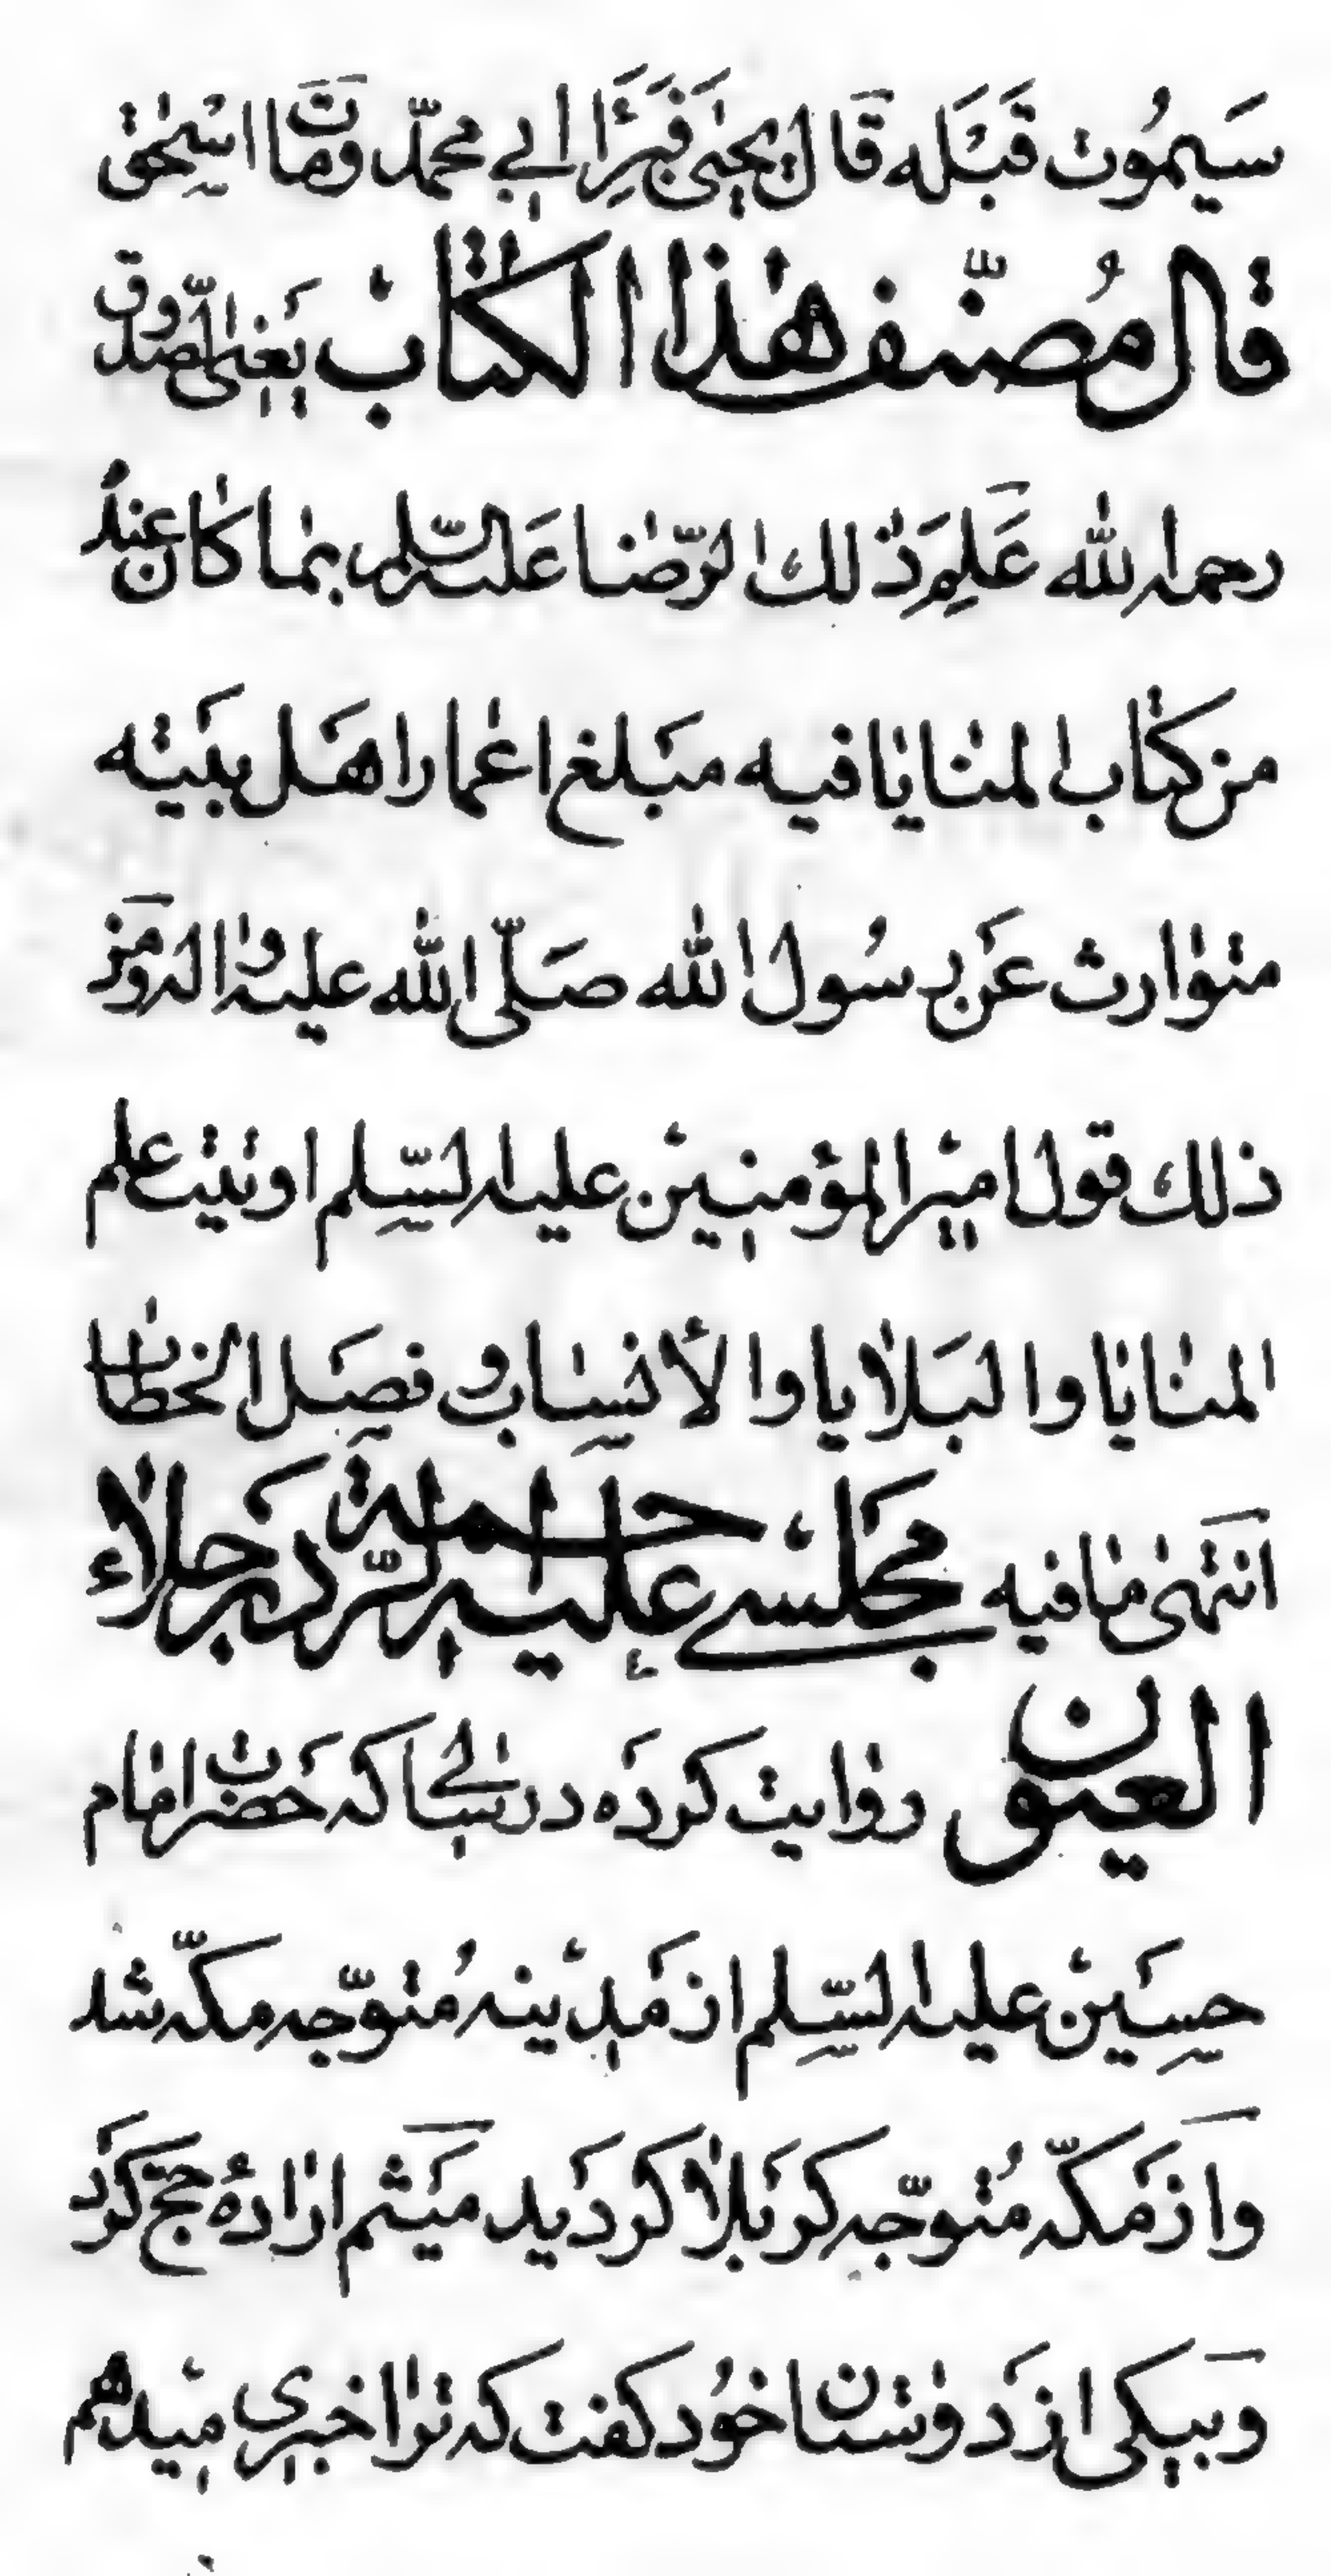 سَیمُوت قَبْلَه قَالَ یحیٰی فَبَرِئَ ابی محمّد وَمَاتَ اسْحٰق
قال مُصنّف هٰذا الکتٰاب یَعنی الصّدوق
رحمه الله عَلِمَ ذٰلك الرّضٰا عَلَیه السّلام بمٰا کٰان عِندَهُ
من کتٰاب المنٰایٰا فیه مَبلغ اعمٰار اهَل بَیته
متوٰارث عَن رسُول الله صَلّی الله علیه وٰاله وَمن
ذلك قول امیْر المؤمنیْن علیه السّلم اوتیت علم
المنٰایٰا والبَلاٰیا والأنسٰاب وفصَل الخطٰاب
انتَهیٰ مٰا فیه مجَلسے علیه الرّحمة در جَلاٰء
العیون روٰایت کردَه در سٰالے که حَضرت امٰام
حسَیْن علیه السّلم از مَدیْنه مُتوجّه مکّه شد
وازمَکّه مُتوجّه کربَلاٰ کردَید میَثم ارٰادهٔ حجّ کرَد
وبیکی از دَوٰستٰان خوُد کفت که ترٰا خبری میدهم